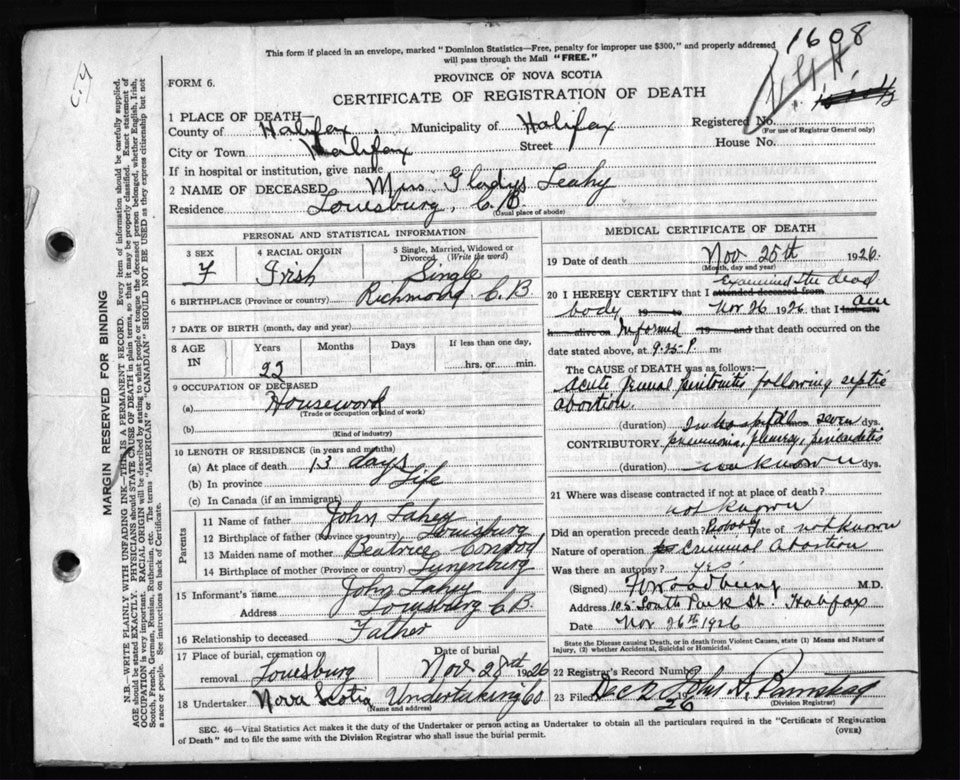 1608
This form if placed in an envelope, marked "Dominion Statistics—Free, penalty for improper use $300," and properly addressed
will pass through the Mail "FREE."
FORM 6.
PROVINCE OF NOVA SCOTIA
CERTIFICATE OF REGISTRATION OF DEATH
1 PLACE OF DEATH—
County of Halifax, Municipality of Halifax Registered No.
(For use of Registrar General only)
City or Town Halifax Street House No.
If in hospital or institution, give name
2 NAME OF DECEASED Miss Gladys Leahy
Residence Louesburg, C.B.
(Usual place of abode)
PERSONAL AND STATISTICAL INFORMATION
3 SEX 4 RACIAL ORIGIN 5 Single, Married, Widowed or Divorced (Write the word)
F Irish Single
6 BIRTHPLACE (Province or country) Richmond C.B.
7 DATE OF BIRTH (month, day and year)
8 AGE IN Years Months Days If less than one day,
22 hrs. or min.
9 OCCUPATION OF DECEASED
(a) Houseword
(Trade or occupation or kind of work)
(b)
(Kind of industry)
10 LENGTH OF RESIDENCE (in years and months)
(a) At place of death 13 days
(b) In province Life
(c) In Canada (if an immigrant)
Parents
11 Name of father John Lahey
12 Birthplace of father (Province or country) Louisburg
13 Maiden name of mother Beatrice Conrod
14 Birthplace of mother (Province or country) Lunenburg
15 Informant's name John Lahey
Address Louisburg C.B.
16 Relationship to deceased Father
17 Place of burial, cremation or removal Louesburg Date of burial Nov 28th 1926
18 Undertaker Nova Scotia Undertaking Co
(Name and address)
MEDICAL CERTIFICATE OF DEATH
19 Date of death Nov 25th 1926
(Month, day and year)
20 I HEREBY CERTIFY that I attended deceased from Examined the dead
body 19 to Nov 26 1926 that I am
Informed 19 and that death occurred on the
date stated above, at 9.25 P. m.
The CAUSE of DEATH was as follows:
Acute peritonitis following septic
abortion.
(duration) In hospital seven dys.
CONTRIBUTORY pneumonia, pleurisy, pericarditis
(duration) unknown dys.
21 Where was disease contracted if not at place of death?
not known
Did an operation precede death? Probably Date of not known
Nature of operation Criminal Abortion
Was there an autopsy? yes
(Signed) Woodbury M.D.
Address 105 South Park St. Halifax
Date Nov 26th 1926
State the Disease causing Death, or in death from Violent Causes, state (1) Means and Nature of
Injury, (2) whether Accidental, Suicidal or Homicidal.
22 Registrar's Record Number
23 Filed Dec 2 1926
(Division Registrar)
SEC. 46—Vital Statistics Act makes it the duty of the Undertaker or person acting as Undertaker to obtain all the particulars required in the "Certificate of Registration
of Death" and to file the same with the Division Registrar who shall issue the burial permit.
(OVER)
MARGIN RESERVED FOR BINDING
N.B.—WRITE PLAINLY WITH UNFADING INK—THIS IS A PERMANENT RECORD. Every item of information should be carefully supplied.
AGE should be stated EXACTLY. PHYSICIANS should STATE CAUSE OF DEATH in plain terms, so that it may be properly classified. Exact statement of
OCCUPATION is very important. RACIAL ORIGIN will be described by stating to what people or tongue the deceased person belonged, whether English, Irish,
Scotch, French, German, Russian, Ruthenian, etc. The terms "AMERICAN" or "CANADIAN" SHOULD NOT BE USED as they express citizenship but not
a race or people. See instructions on back of Certificate.